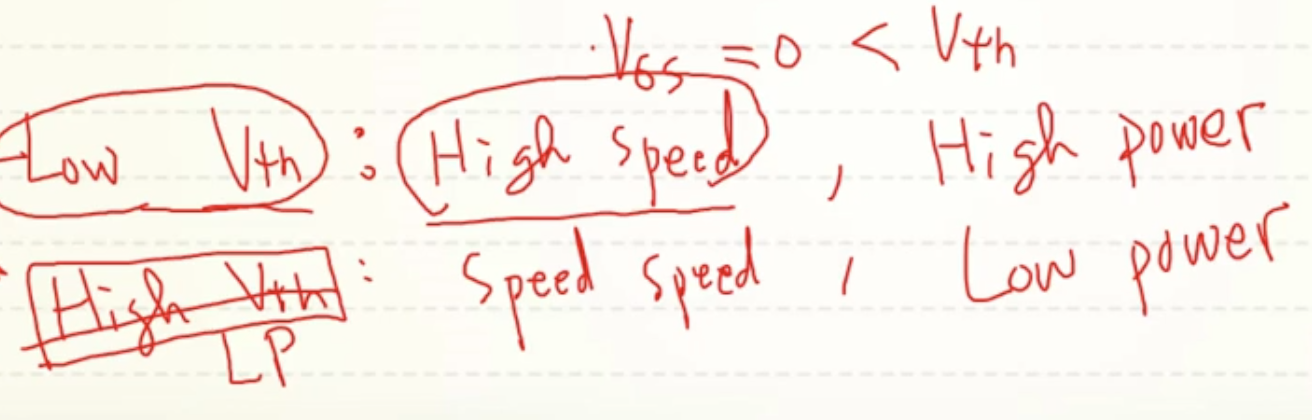 V_GS = 0 < Vth
Low Vth : High speed , High power
High Vth : Speed speed , Low power
LP